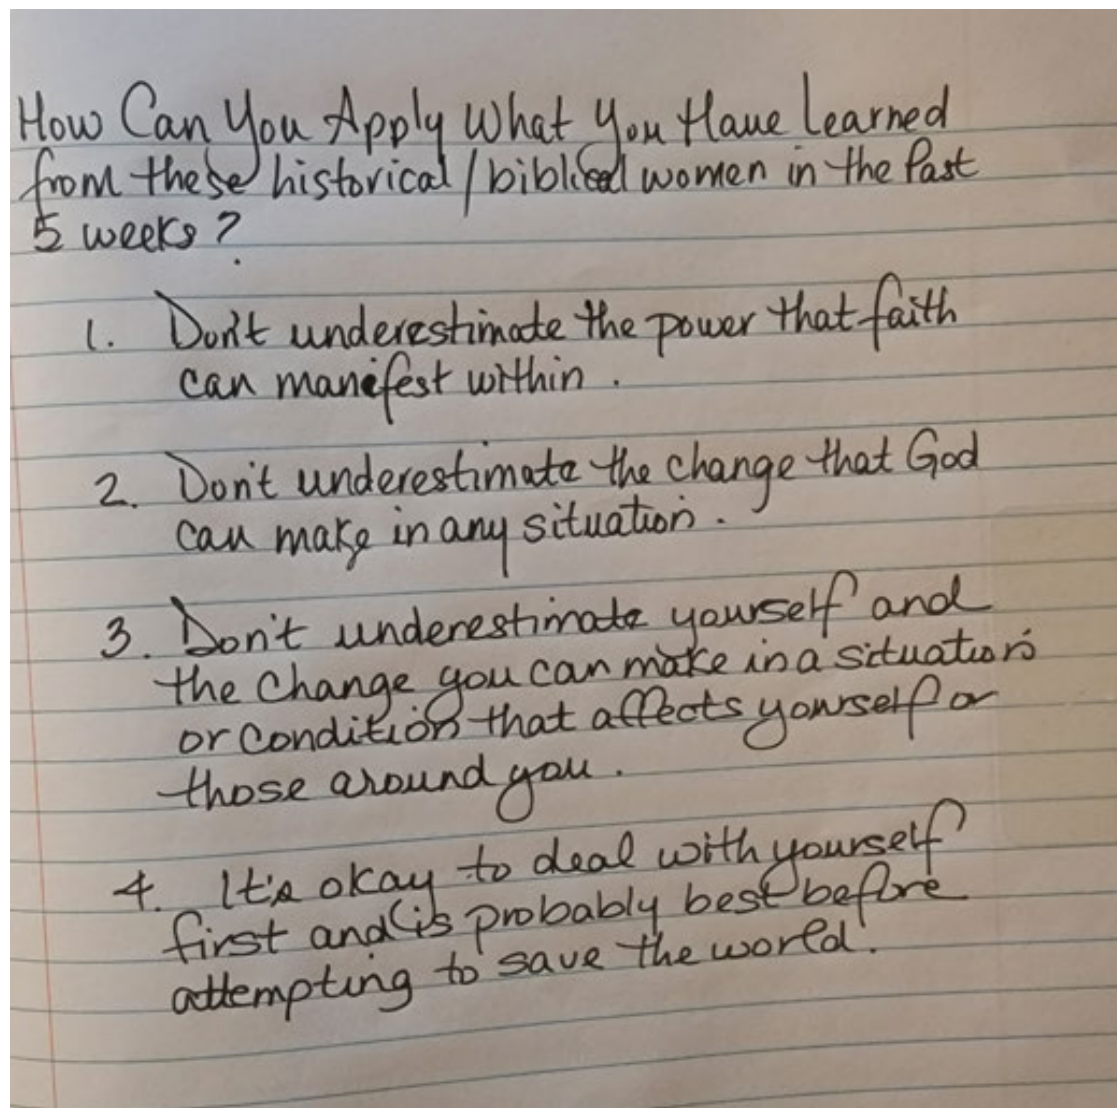 How Can You Apply What You Have Learned
from these historical/biblical women in the Past
5 weeks?
1. Don't underestimate the power that faith
can manifest within.
2. Don't underestimate the change that God
can make in any situation.
3. Don't underestimate yourself and
the change you can make in a situation
or condition that affects yourself or
those around you.
4. It's okay to deal with yourself
first and (is probably best before
attempting to save the world.